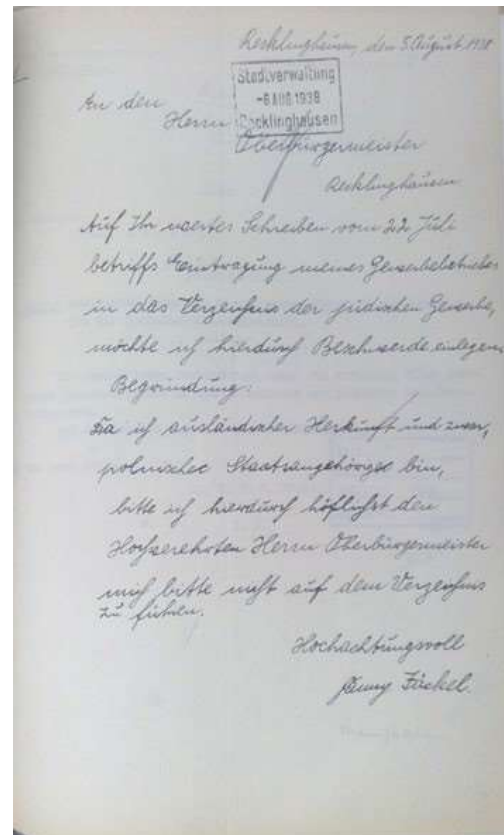 Recklinghausen, den 5. August 1938
Stadtverwaltung
-6 AUG 1938
Recklinghausen
An den
Herrn
Oberbürgermeister
Recklinghausen
Auf Ihr wertes Schreiben vom 22 Juli
betriffs Eintragung meines Gewerbebetriebes
in das Verzeichnis der jüdischen Gewerbe,
möchte ich hierdurch Beschwerde einlegen
Begründung:
Da ich ausländischer Herkunft und zwar,
polnischer Staatsangehörige bin,
bitte ich hierdurch höflichst den
Hochverehrten Herrn Oberbürgermeister
mich bitte nicht auf dem Verzeichnis
zu führen.
Hochachtungsvoll
Fanny Jäckel.